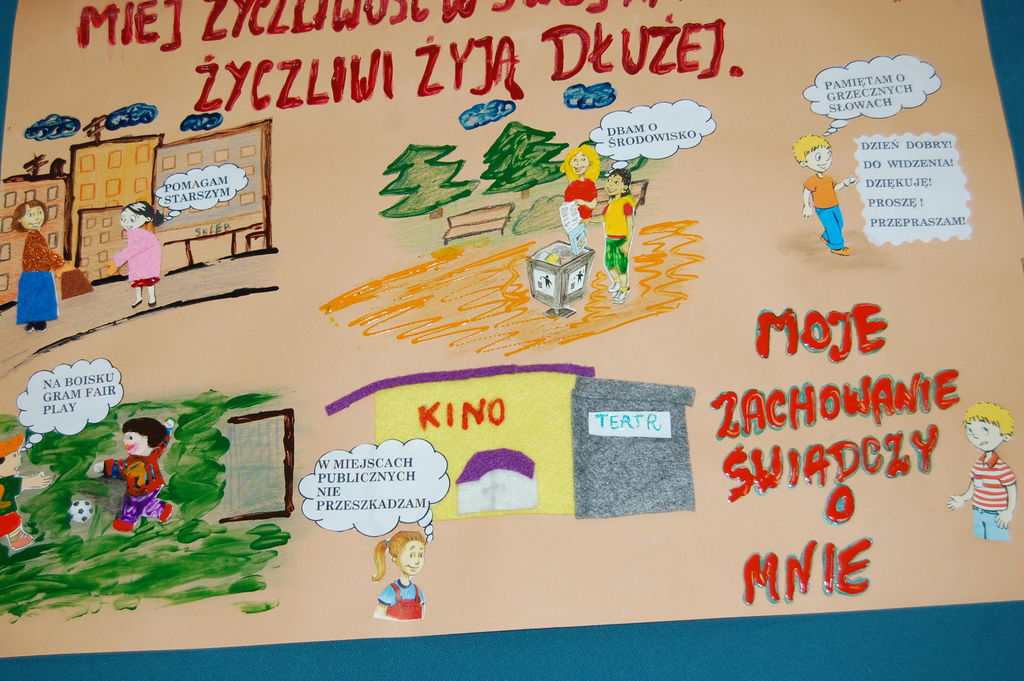 MIEJ ŻYCZLIWOŚĆ W
ŻYCZLIWI ŻYJĄ DŁUŻEJ.
POMAGAM
STARSZYM
SKLEP
DBAM O
ŚRODOWISKO
PAMIĘTAM O
GRZECZNYCH
SŁOWACH
DZIEŃ DOBRY!
DO WIDZENIA!
DZIĘKUJĘ!
PROSZĘ!
PRZEPRASZAM!
NA BOISKU
GRAM FAIR
PLAY
KINO
TEATR
W MIEJSCACH
PUBLICZNYCH
NIE
PRZESZKADZAM
MOJE
ZACHOWANIE
ŚWIADCZY
O
MNIE